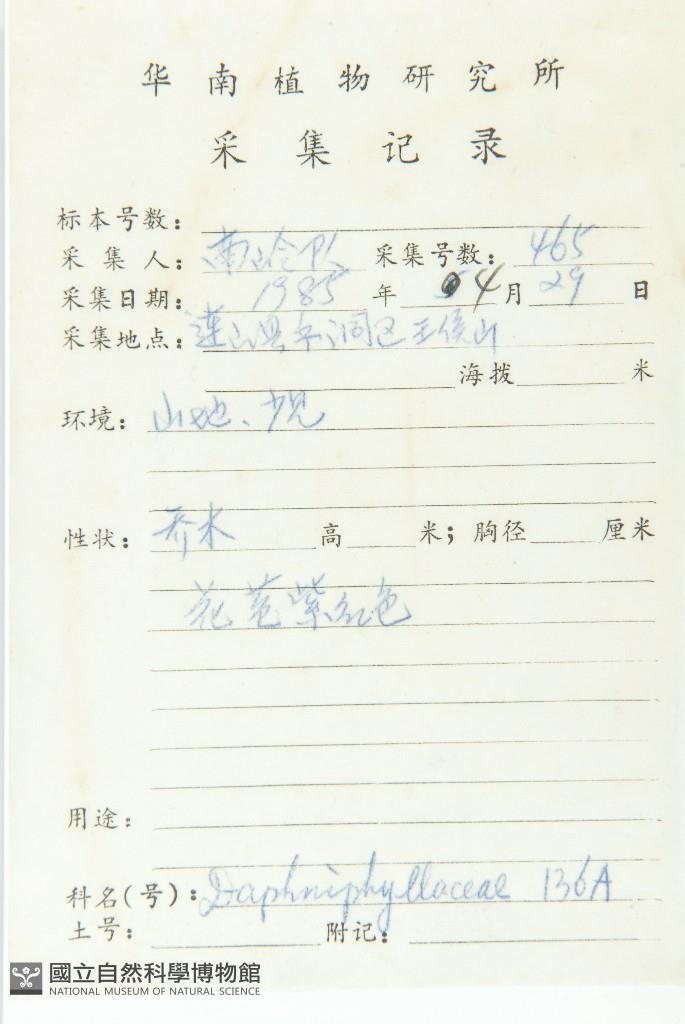 华南植物研究所
采集记录
标本号数:
采集人: 南岭队 采集号数: 465
采集日期: 1985 年 04 月 29 日
采集地点: 莲山县 洞区王侯山
海拨 米
环境: 山地、少见
性状: 乔木 高 米; 胸径 厘米
花苞紫红色
用途:
科名(号): Daphniphyllaceae 136A
土号: 附记:
國立自然科學博物館
NATIONAL MUSEUM OF NATURAL SCIENCE